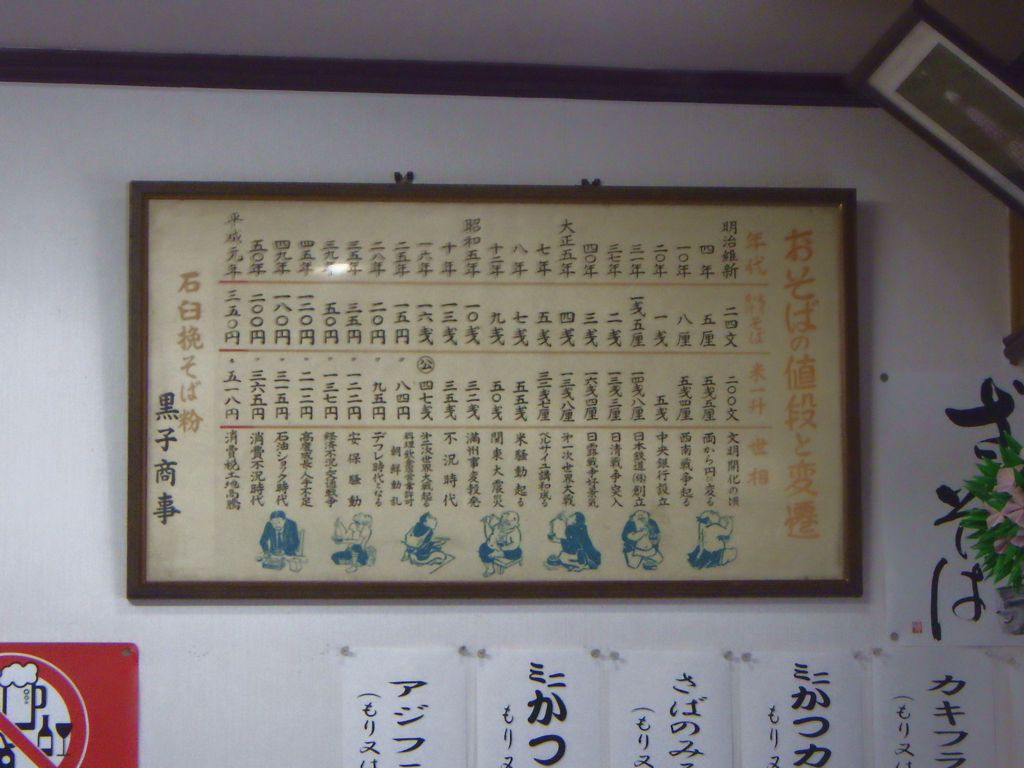 おそばの値段と変遷
年代 もり・かけそば 米一升 世相
明治維新 二四文 二〇〇文 文明開化の頃
四年 五厘 五銭五厘 両から円に変る
一〇年 八厘 五銭四厘 西南戦争起る
二〇年 一銭 五銭 中央銀行設立
三一年 一銭五厘 一四銭八厘 日本鉄道㈱創立
三七年 二銭 一三銭三厘 日清戦争突入
四〇年 三銭 一六銭四厘 日露戦争好景気
大正五年 四銭 一三銭八厘 第一次世界大戦
七年 五銭 三二銭五厘 ベルサイユ講和成る
八年 七銭 五五銭 米騒動起る
十二年 九銭 五〇銭 関東大震災
昭和五年 一〇銭 三二銭 満州事変勃発
十年 一三銭 三五銭 不況時代
一六年 一六銭 ㊂ 四七銭 第二次世界大戦起る
二五年 一五円 〃 八四円 料理飲食営業許可 朝鮮動乱
二八年 二〇円 〃 九五円 デフレ時代となる
三五年 三五円 〃 一二二円 安保騒動
三九年 五〇円 〃 一三七円 経済不況・交通戦争
四五年 一〇〇円 〃 二一二円 高度成長・人手不足
四九年 一八〇円 〃 三一五円 石油ショック時代
五〇年 二〇〇円 〃 三六五円 消費不況時代
平成元年 三五〇円 〃 五一八円 消費税・土地高騰
石臼挽そば粉
黒子商事
ざるそば
カキフラ
(もり又は
ミニかつカ
もり又
さばのみそ
(もり又
ミニかつ
もり又
アジフ
(もり又は